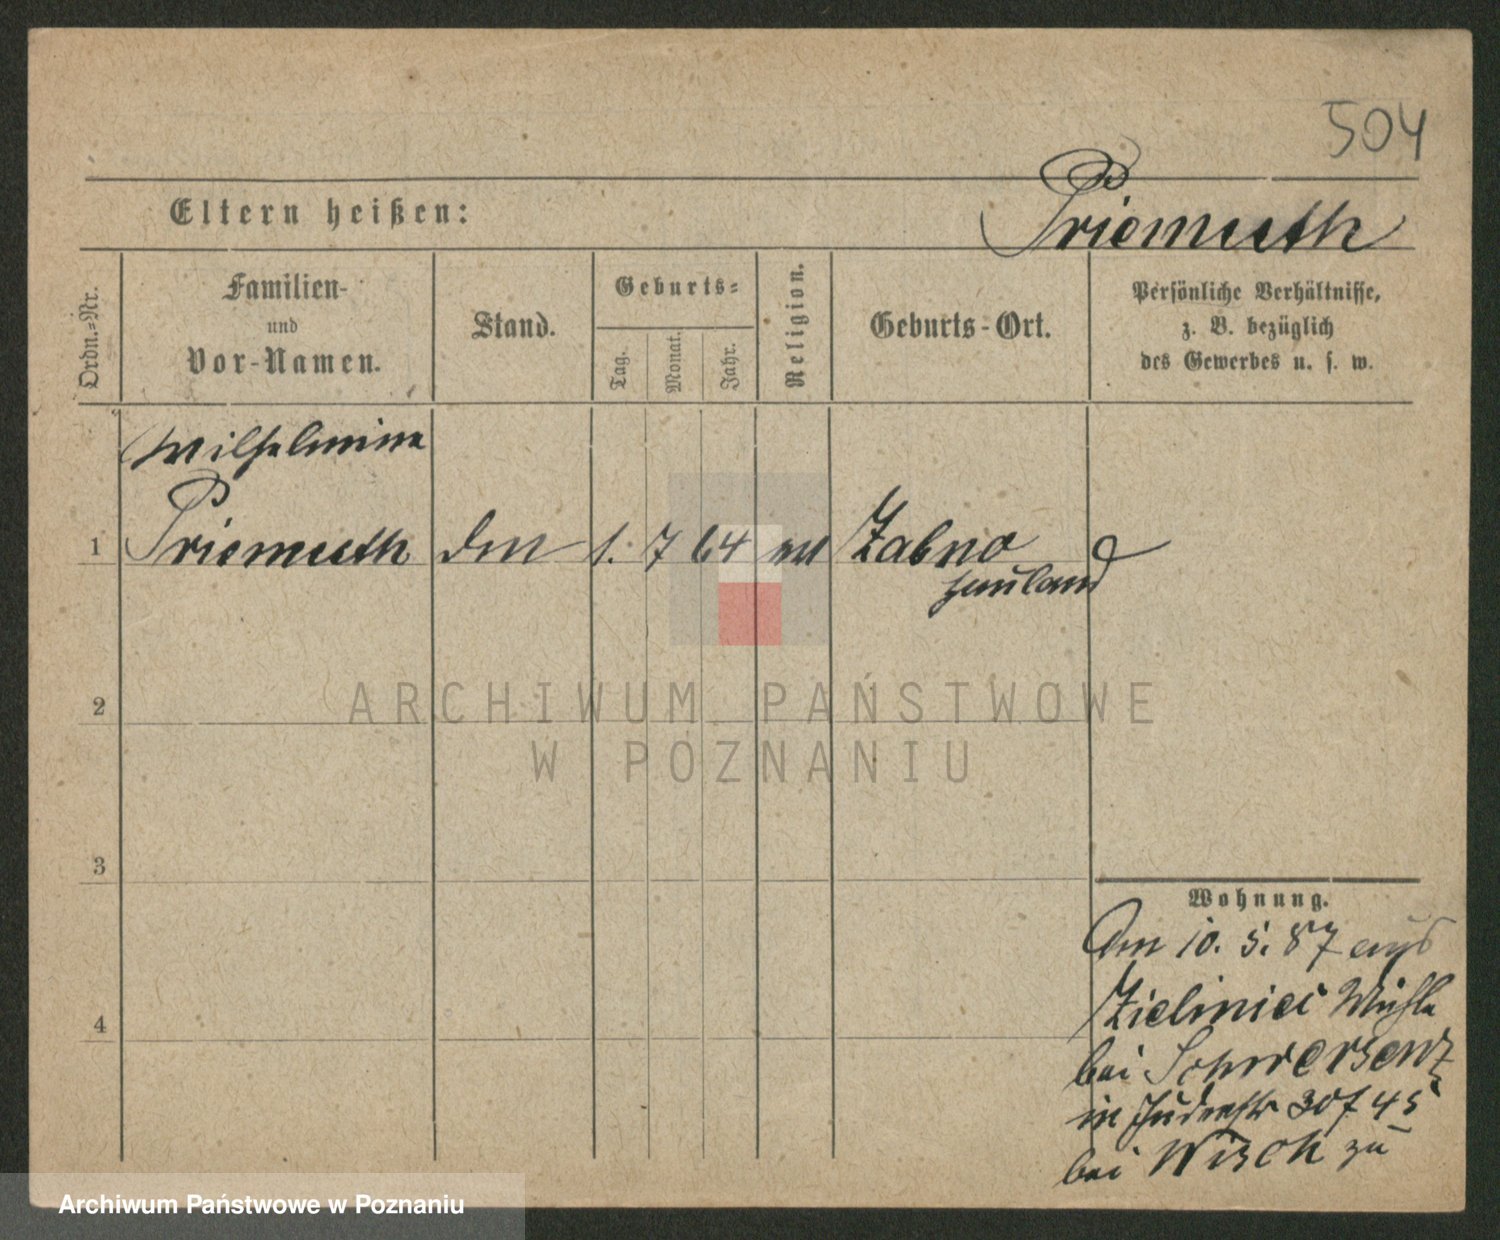 504
Eltern heißen:
Priemuth
Ordn.=Nr.
Familien-
und
Vor-Namen.
Stand.
Geburts=
Tag.
Monat.
Jahr.
Religion.
Geburts-Ort.
Persönliche Verhältnisse,
z. B. bezüglich
des Gewerbes u. s. w.
Wilhelmine
1 Priemuth 1. 7 64 Zabno
Hauland
2
ARCHIWUM PAŃSTWOWE
W POZNANIU
3
Wohnung.
Am 10. 5. 87 aus
4
Zieliniec Mühle
bei Schwersenz
in 45
bei zu
Archiwum Państwowe w Poznaniu